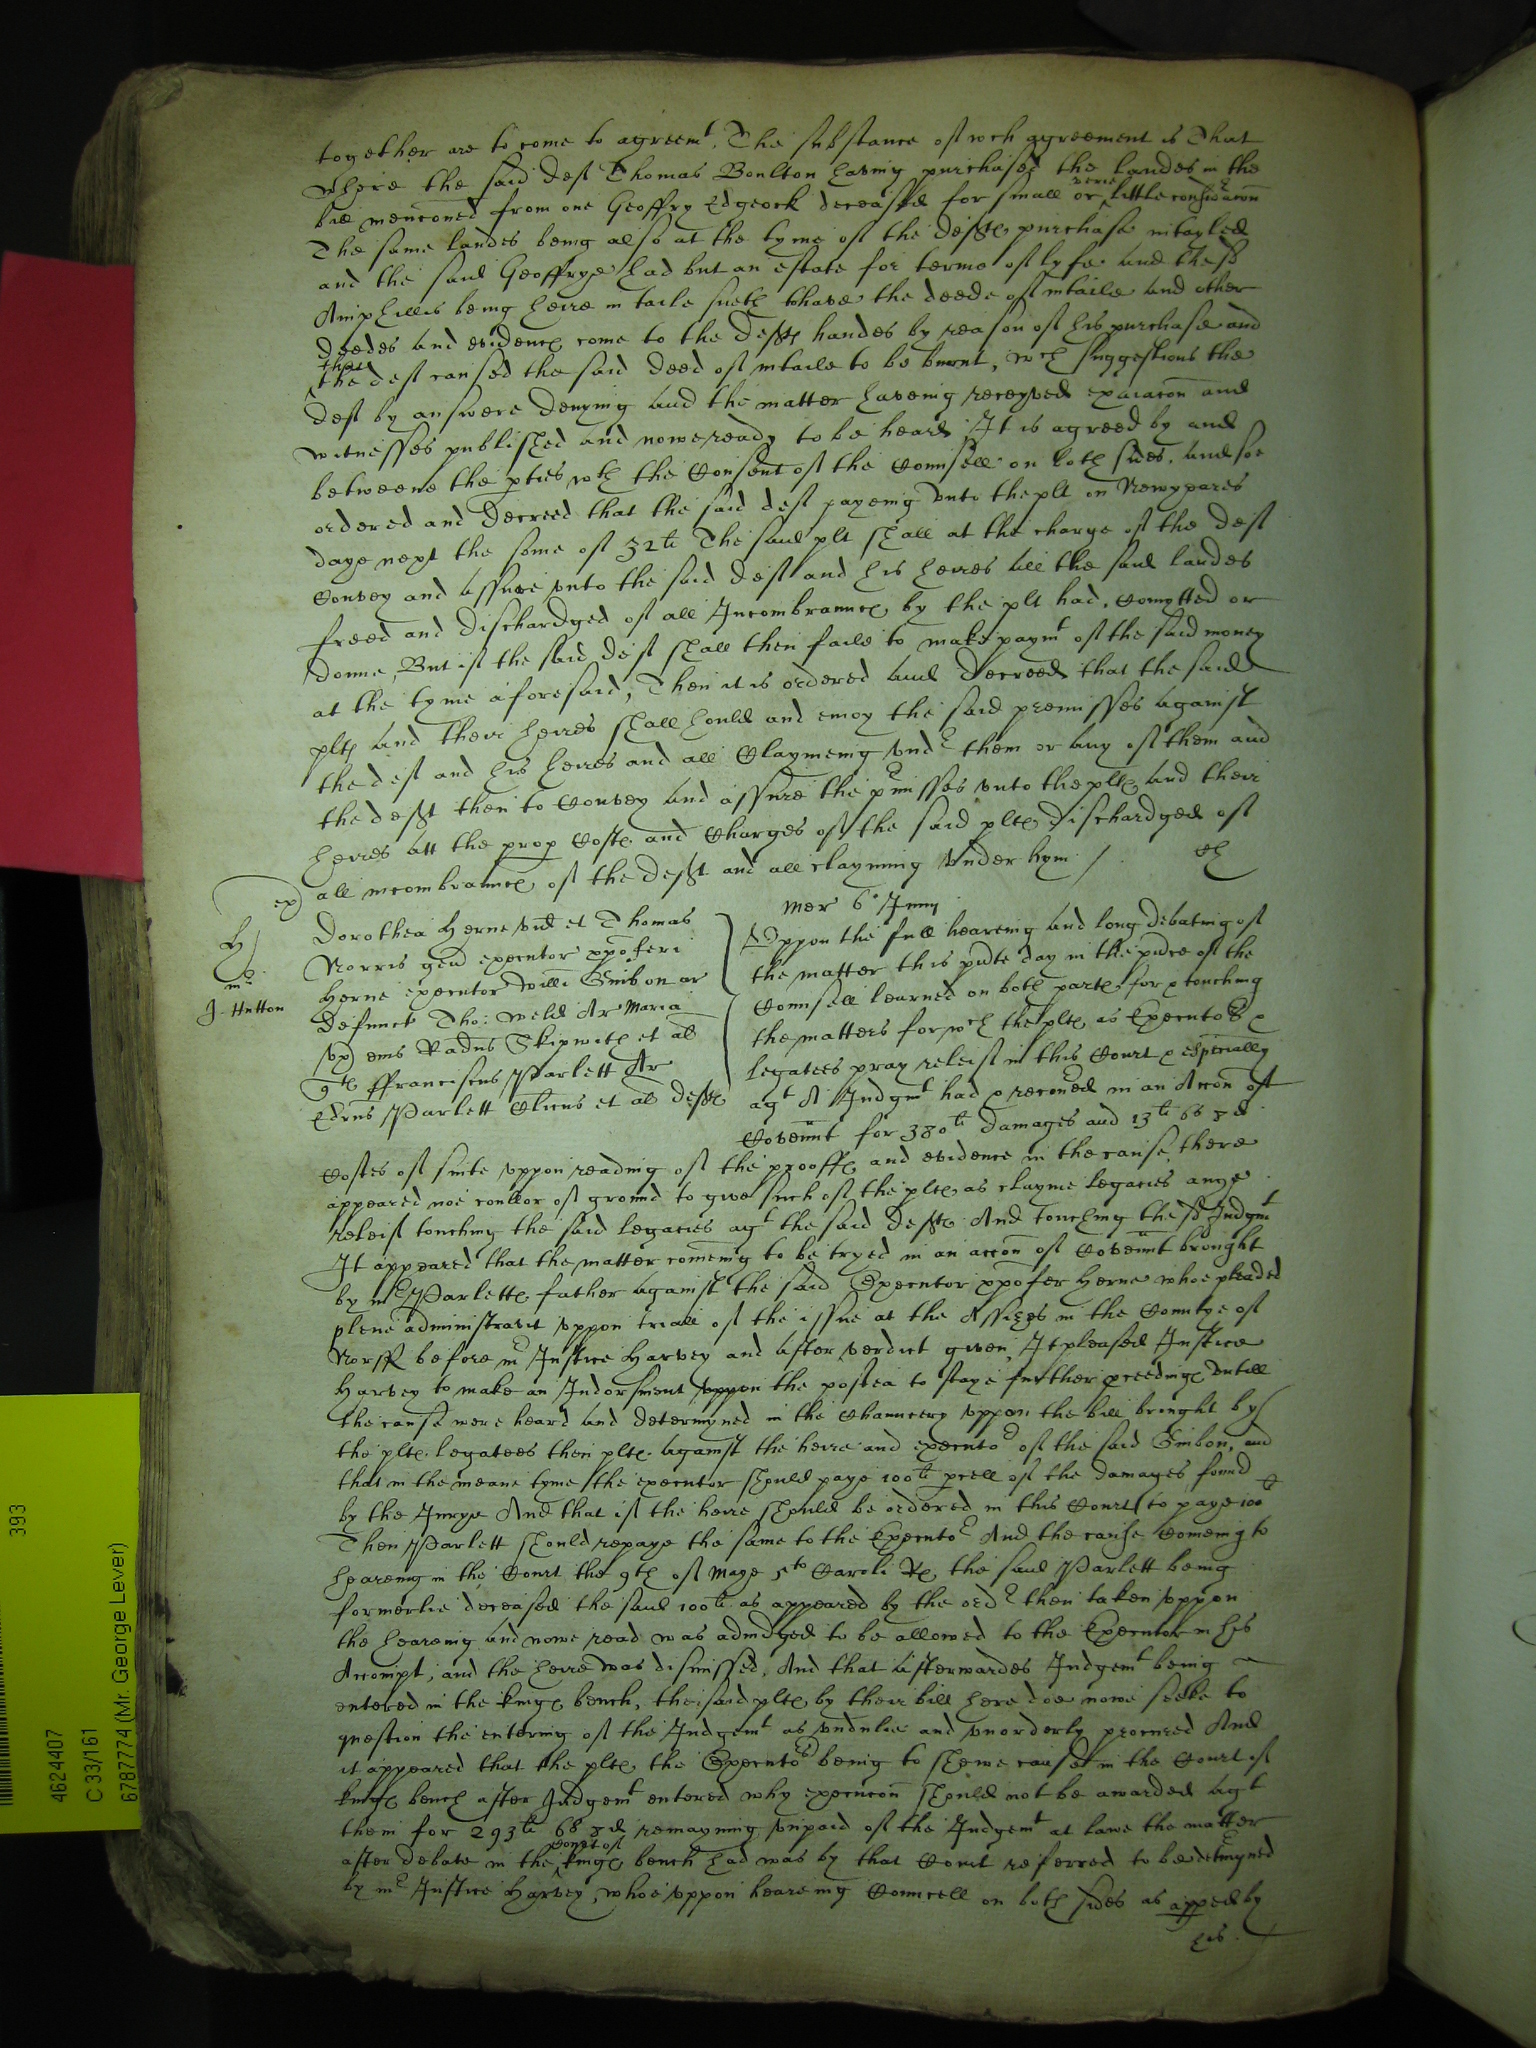 together are to come to agreemt. The substance of wch agreement is That
where the said deft Thomas Boulton having purchased the landes in the
bill menconed from one Geoffry Edgcock deceased for small or verie little consideracon
The same landes being also at the tyme of the defts purchase intayled
and the said Geoffrye had but an estate for terme of lyfe and the sd
Amphillis being heire in taile sueth to have the deede of intaile and other
deedes and evidences come to the defts handes by reason of his purchase and
that the deft caused the said deed of intaile to be burnt, wch suggestions the
deft by answere denying and the matter haveing receyved exaiacon and
witnesses published and nowe ready to be heard, It is agreed by and
betweene the pties wth the Consent of the Counsell on both sides. and soe
ordered and decreed that the said deft payeing unto the plt on Newyeares
daye next the some of 32li The said plt shall at the charge of the deft
Convey and assure unto the said deft and his heires all the said landes
freed and dischardged of all Incombraunces by the plt had, comytted or
donne, But if the said deft shall then faile to make paymt of the said money
at the tyme aforesaid, Then it is ordered and decreed that the said
plts and their heires shall hould and enioy the said premisses against
the deft and his heires and all Claymeing undr them or any of them and
the deft then to Convey and assure the pmisses unto the plts and their
heires att the prop Costs and Charges of the said plts dischardged of
all incombraunces of the deft and all clayming under hym /
ex
Mer 6o Junij
Dorothea Herne vid et Thomas
Norris gen executor xpoferi
Herne executor Willi Guibon ar
defunct Tho: Weld Ar Maria
ux eius Radus Skipwith et al
qts ffranciscus Parlett Ar
Edrus Parlett Clicus et al defts
J. Hutton
Uppon the full heareing and long debating of
the matter this pnte day in the pnce of the
Counsell learned on both partes for & touching
the matters for wch the plts as Executors &
legatees pray releif in this Court & especially
agt A Judgmt had & recoued in an Accon of
Covennt for 380li damages and 13li 6s 8d
Costes of suite uppon reading of the prooffes and evidence in the cause, there
appeared noe coullor of ground to give such of the plts as clayme legacies anye
releif touching the said legacies agt the said defts And touching the sd Judgmt
It appeared that the matter comeing to be tryed in an accon of Covennt brought
by mr Parletts father against the said Executor xpofer Herne whoe pleaded
plene administravit uppon triall of the issue at the Assizes in the Countye of
Norff before mr Justice Harvey and after verdict given, It pleased Justice
Harvey to make an Indorsment uppon the postea to staye further pceedings untill
the cause were heard and determyned in the Chauncery uppon the bill brought by
the plts legatees then plts against the heire and executor of the said Guibon, and
that in the meane tyme the executor should paye 100li pcell of the damages found
by the Jurye And that if the heire should be ordered in this Court to paye 100li
Then Parlett should repaye the same to the Executor And the cause Comeing to
heareing in the Court the 9th of Maye 5to Caroli Rs the said Parlett being
formerlie deceased the said 100li as appeared by the ordr then taken uppon
the heareing and nowe read was adiudged to be allowed to the Executor in his
Accompt, and the heire was dismissed, And that afterwardes Judgemt being
entered in the kings bench, the said plts by their bill here doe nowe seeke to
question the entering of the Judgemt as undulie and unorderly procured And
it appeared that the plts the Executors being to shewe cause in the Court of
kings bench after Judgemt entered why execucon should not be awarded agt
them for 293li 6s 8d remayning unpaid of the Judgemt at lawe the matter
after debate in the Court of kings bench had was by that Court referred to be detmyned
by mr Justice Harvey, whoe uppon heareing Councell on both sides as apped by
his
393
4624407
C 33/161
6787774 (Mr. George Lever)